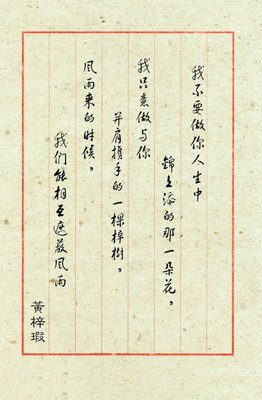 我不要做你人生中
锦上添的那一朵花，
我只意做与你
并肩携手的一棵梓樹，
风雨来的时候，
我们能相互遮蔽风雨
黃梓瑕